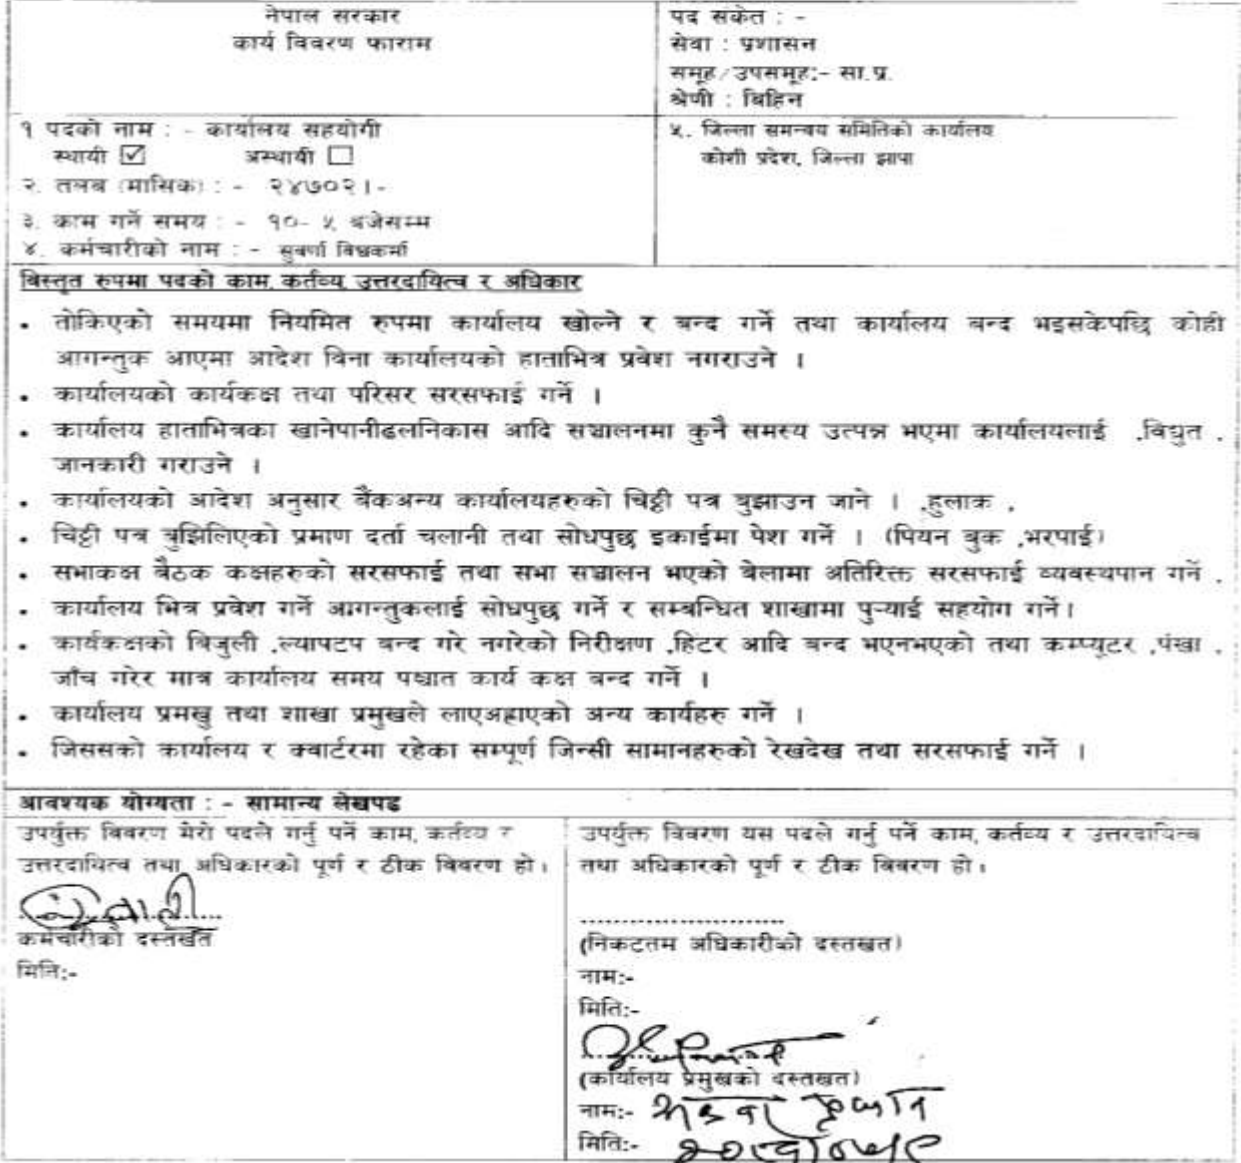 नेपाल सरकार
कार्य विवरण फाराम
पद संकेत : -
सेवा : प्रशासन
समूह/उपसमूह:- सा.प्र.
श्रेणी : बिहिन
१ पदको नाम : - कार्यालय सहयोगी
स्थायी ☑ अस्थायी ☐
२. तलब (मासिक) : - २४७०२।-
३. काम गर्ने समय : - १०- ५ बजेसम्म
४. कर्मचारीको नाम : - सुवर्णा विश्वकर्मा
५. जिल्ला समन्वय समितिको कार्यालय
कोशी प्रदेश, जिल्ला झापा
बिस्तृत रुपमा पदको काम, कर्तव्य, उत्तरदायित्व र अधिकार
• तोकिएको समयमा नियमित रुपमा कार्यालय खोल्ने र बन्द गर्ने तथा कार्यालय बन्द भइसकेपछि कोही
आगन्तुक आएमा आदेश बिना कार्यालयको हाताभित्र प्रवेश नगराउने ।
• कार्यालयको कार्यकक्ष तथा परिसर सरसफाई गर्ने ।
• कार्यालय हाताभित्रका खानेपानीढलनिकास आदि सञ्चालनमा कुनै समस्य उत्पन्न भएमा कार्यालयलाई ,विधुत ,
जानकारी गराउने ।
• कार्यालयको आदेश अनुसार बैंकअन्य कार्यालयहरुको चिठ्ठी पत्र बुझाउन जाने । ,हुलाक ,
• चिट्ठी पत्र बुझिलिएको प्रमाण दर्ता चलानी तथा सोधपुछ इकाईमा पेश गर्ने । (पियन बुक ,भरपाई)
• सभाकक्ष बैठक कक्षहरुको सरसफाई तथा सभा सञ्चालन भएको बेलामा अतिरिक्त सरसफाई व्यवस्थपान गर्ने .
• कार्यालय भित्र प्रवेश गर्ने आगन्तुकलाई सोधपुछ गर्ने र सम्बन्धित शाखामा पुर्‍याई सहयोग गर्ने।
• कार्यकक्षको बिजुली ,ल्यापटप बन्द गरे नगरेको निरीक्षण ,हिटर आदि बन्द भएनभएको तथा कम्प्यूटर ,पंखा ,
जाँच गरेर मात्र कार्यालय समय पश्चात कार्य कक्ष बन्द गर्ने ।
• कार्यालय प्रमखु तथा शाखा प्रमुखले लाएअह्राएको अन्य कार्यहरु गर्ने ।
• जिससको कार्यालय र क्वार्टरमा रहेका सम्पूर्ण जिन्सी सामानहरुको रेखदेख तथा सरसफाई गर्ने ।
आवश्यक योग्यता : - सामान्य लेखपढ
उपर्युक्त बिबरण मेरो पदले गर्नु पर्ने काम, कर्तव्य र
उत्तरदायित्व तथा अधिकारको पूर्ण र ठीक बिबरण हो।
कर्मचारीको दस्तखत
मिति:-
उपर्युक्त विबरण यस पदले गर्नु पर्ने काम, कर्तव्य र उत्तरदायित्व
तथा अधिकारको पूर्ण र ठीक बिबरण हो।
........................
(निकटतम अधिकारीको दस्तखत)
नाम:-
मिति:-
(कार्यालय प्रमुखको दस्तखत)
नाम:-
मिति:-